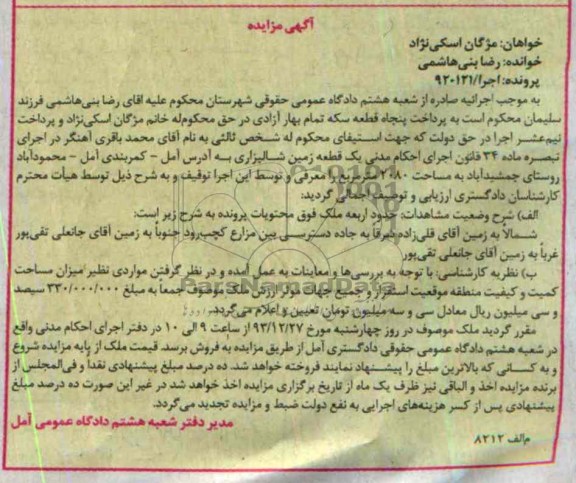 آگهی مزایده
خواهان: مژگان اسکی‌نژاد
خوانده: رضا بنی‌هاشمی
پرونده: اجرا/۹۲۰۱۲۱
به موجب اجرائیه صادره از شعبه هشتم دادگاه عمومی حقوقی شهرستان محکوم علیه آقای رضا بنی‌هاشمی فرزند
سلیمان محکوم است به پرداخت پنجاه قطعه سکه تمام بهار آزادی در حق محکوم‌له خانم مژگان اسکی‌نژاد و پرداخت
نیم‌عشر اجرا در حق دولت که جهت استیفای محکوم له شخص ثالثی به نام آقای محمد باقری آهنگر در اجرای
تبصره ماده ۳۴ قانون اجرای احکام مدنی یک قطعه زمین شالیزاری به آدرس آمل - کمربندی آمل - محمودآباد
روستای جمشیدآباد به مساحت ۲۰۸۰ مترمربع را معرفی و توسط این اجرا توقیف و به شرح ذیل توسط هیأت محترم
کارشناسان دادگستری ارزیابی و توصیف اجمالی گردید:
الف) شرح وضعیت مشاهدات: حدود اربعه ملک فوق محتویات پرونده به شرح زیر است:
شمالاً به زمین آقای قلی‌زاده شرقاً به جاده دسترسی بین مزارع کچب‌رود جنوباً به زمین آقای جانعلی تقی‌پور
غرباً به زمین آقای جانعلی تقی‌پور
ب) نظریه کارشناسی: با توجه به بررسی‌ها و معاینات به عمل آمده و در نظر گرفتن مواردی نظیر میزان مساحت
کمیت و کیفیت منطقه موقعیت استقرار و جمیع جهات موثر ارزش ملک موصوف جمعاً به مبلغ ۳۳۰/۰۰۰/۰۰۰ سیصد
و سی میلیون ریال معادل سی و سه میلیون تومان تعیین و اعلام می‌گردد.
مقرر گردید ملک موصوف در روز چهارشنبه مورخ ۹۳/۱۲/۲۷ از ساعت ۹ الی ۱۰ در دفتر اجرای احکام مدنی واقع
در شعبه هشتم دادگاه عمومی حقوقی دادگستری آمل از طریق مزایده به فروش برسد. قیمت ملک از پایه مزایده شروع
و به کسانی که بالاترین مبلغ را پیشنهاد نمایند فروخته خواهد شد. ده درصد مبلغ پیشنهادی نقداً و فی‌المجلس از
برنده مزایده اخذ و الباقی نیز ظرف یک ماه از تاریخ برگزاری مزایده اخذ خواهد شد در غیر این صورت ده درصد مبلغ
پیشنهادی پس از کسر هزینه‌های اجرایی به نفع دولت ضبط و مزایده تجدید می‌گردد.
مدیر دفتر شعبه هشتم دادگاه عمومی آمل
م/الف ۸۲۱۲